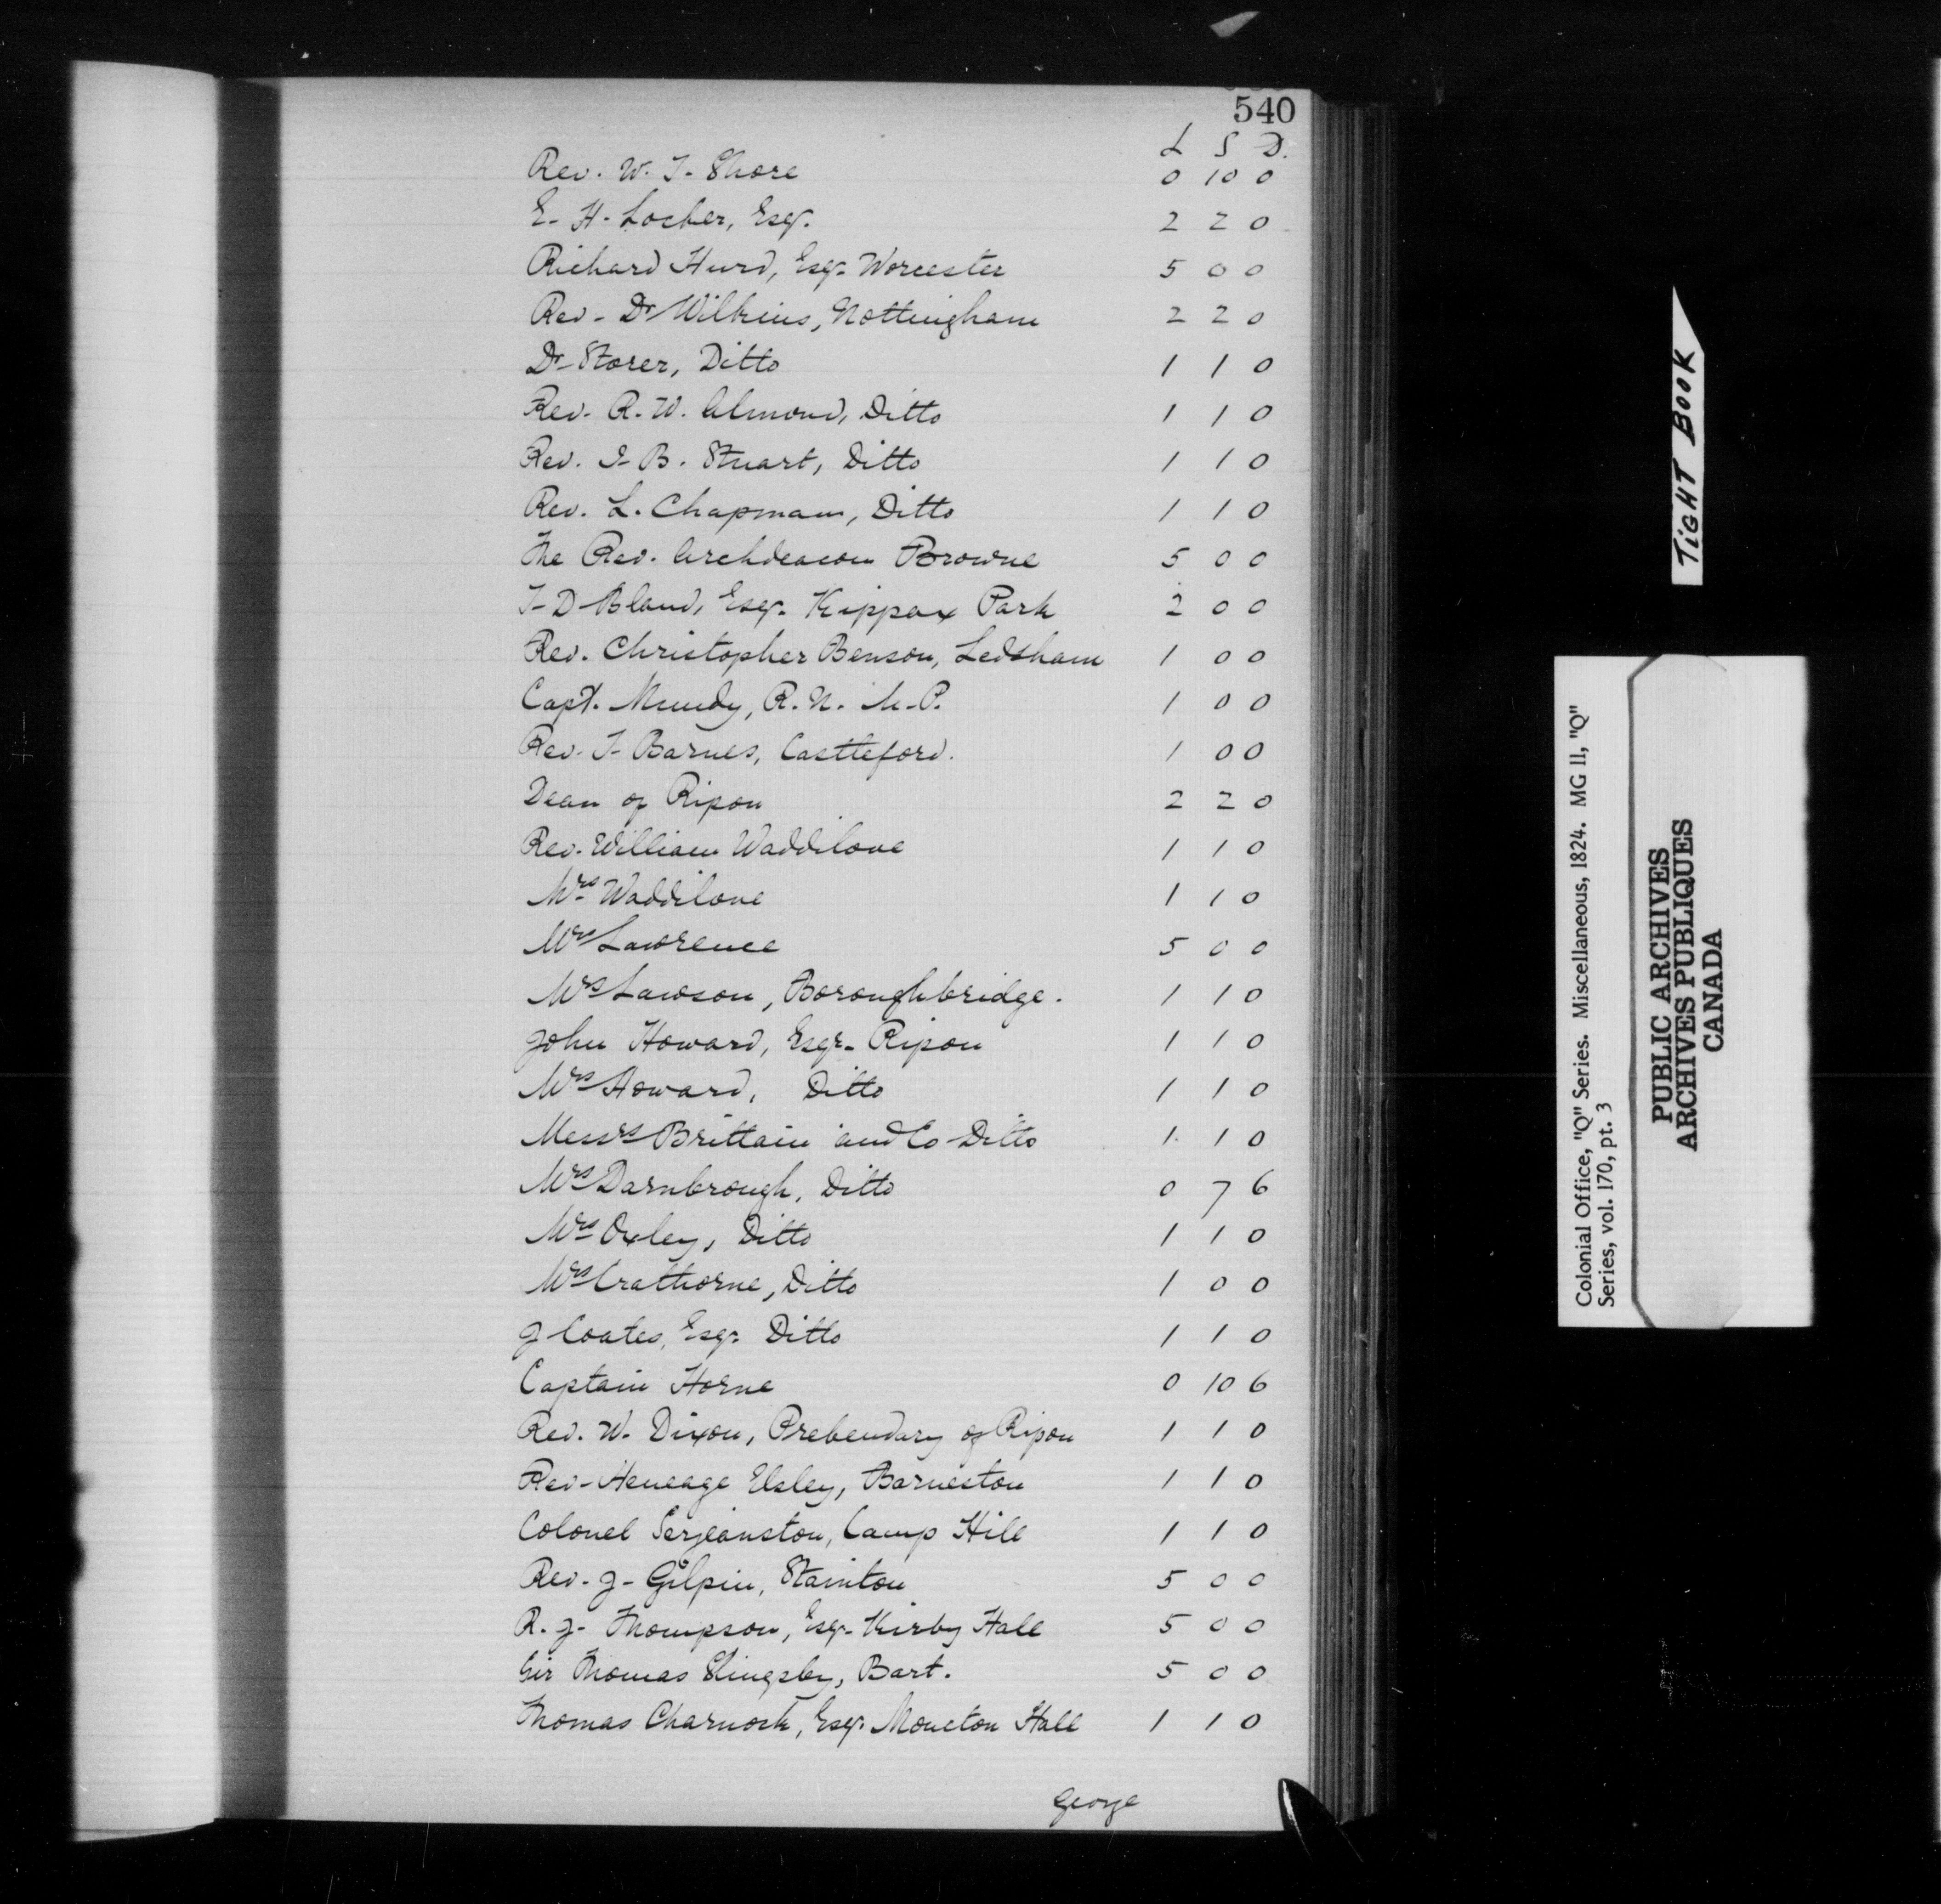 540
£ S D.
Rev. W. T. Shore 0 10 0
E. H. Locker, Esq. 2 2 0
Richard Hurd, Esq. Worcester 5 0 0
Rev. Dr Wilkins, Nottingham 2 2 0
Dr Storer, Ditto 1 1 0
Rev. R. W. Almond, Ditto 1 1 0
Rev. I. B. Stuart, Ditto 1 1 0
Rev. L. Chapman, Ditto 1 1 0
The Rev. Archdeacon Browne 5 0 0
T. D. Bland, Esq. Kippax Park 2 0 0
Rev. Christopher Benson, Ledsham 1 0 0
Capt. Mundy, R. N. M. P. 1 0 0
Rev. T. Barnes, Castleford. 1 0 0
Dean of Ripon 2 2 0
Rev. William Waddilove 1 1 0
Mrs Waddilove 1 1 0
Mrs Lawrence 5 0 0
Mrs Lawson, Boroughbridge. 1 1 0
John Howard, Esqr. Ripon 1 1 0
Mrs Howard, Ditto 1 1 0
Messrs Brittain and Co Ditto 1 1 0
Mrs Darnbrough, Ditto 0 7 6
Mrs Oxley, Ditto 1 1 0
Mrs Crathorne, Ditto 1 0 0
J Coates, Esqr. Ditto 1 1 0
Captain Horne 0 10 6
Rev. W. Dixon, Prebendary of Ripon 1 1 0
Rev. Heneage Elsley, Barneston 1 1 0
Colonel Serjeanston, Camp Hill 1 1 0
Rev. J. Gilpin, Stainton 5 0 0
R. J. Thompson, Esq. Kirby Hall 5 0 0
Sir Thomas Slingsby, Bart. 5 0 0
Thomas Charnock, Esq. Moncton Hall 1 1 0
George
TIGHT BOOK
Colonial Office, "Q" Series. Miscellaneous, 1824. MG 11, "Q"
Series, vol. 170, pt. 3
PUBLIC ARCHIVES
ARCHIVES PUBLIQUES
CANADA